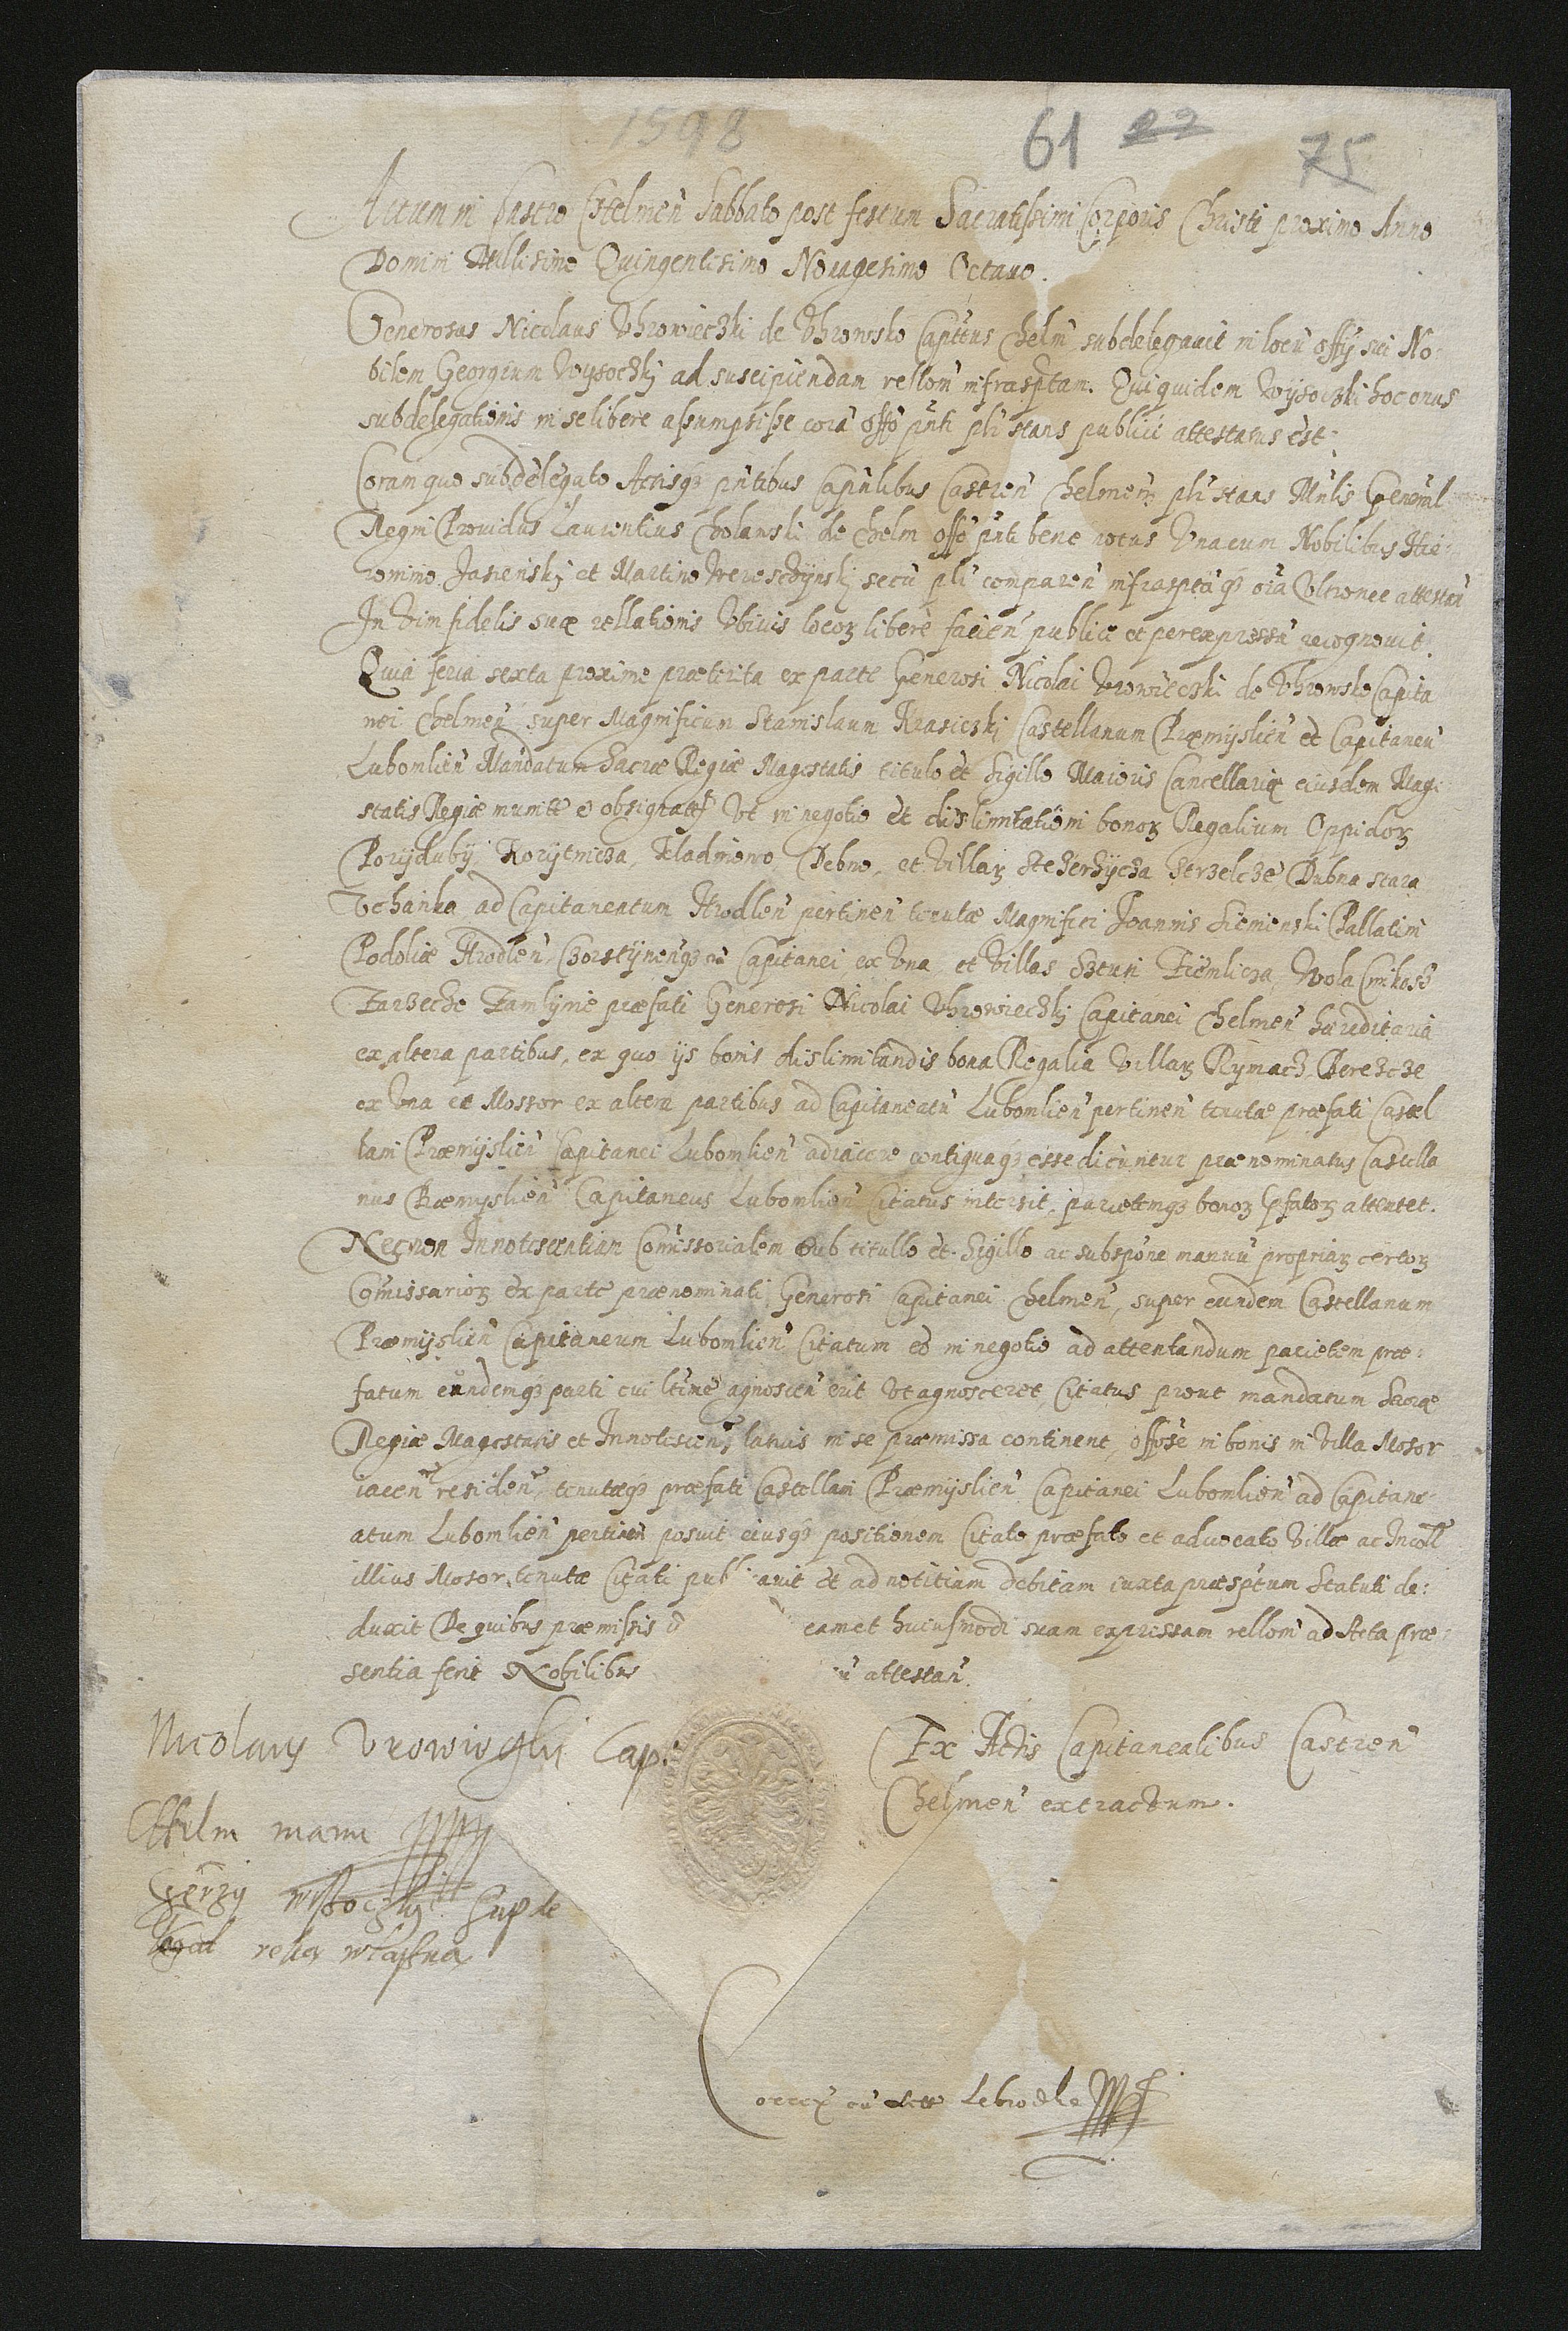 1598
61 22 75
Actum in Castro Chelmeñ Sabbato post festum Sacratissimi Corporis Christi proximo Anno
Domini Millesimo Quingentesimo Nonagesimo Octauo.
Generosus Nicolaus Vhrowieczki de Vhrowsko Capttus Chelm̃ subdelegauit in locũ offÿ sui No-
bilem Georgium Wysoczkÿ ad suscipiendam rellom̃ infrasptam. Qui quidem Wysoczki hoc onus
subdelegationis in se libere assumpsisse corã offõ pñti plr̃ stans publice attestatus est.
Coram quo subdelegato Actisq3 pñtibus Capñlibus Castreñ Chelmeñ plr̃ stans Mnlis Generãl
Regni Prouidus Laurentius Cholawski de Chelm offõ pñti bene notus Vnacum Nobilibus Hie-
ronimo Jasienskÿ et Martino Weresczÿnskÿ secũ plr̃ compareñ infrasptãq3 oĩa Vltronee attestañ
In Vim fidelis suæ rellationis Vbiuis locoꝝ libere facieñ publice et per expressũ recognouit.
Quia feria sexta proxime præterita ex parte Generosi Nicolai Vrowieczki de Vhrowsko Capita
nei Chelmeñ super Magnificum Stanislaum Krasiczkÿ Castellanum Præmÿslieñ et Capitaneũ
Lubomlieñ Mandatum Sacræ Regiæ Magestatis titulo et Sigillo Maioris Cancellariæ eiusdem Mage
statis Regiæ munitt et obsignatt Vt in negotio et dislimitationi bonoꝝ Regalium Oppidoꝝ
Porÿdubÿ, Korÿtnicza, Kladniowo, Debno, et Villaꝝ Strzelcze Dubna stara
Vchanka ad Capitaneatum Hrodleñ pertineñ tenutæ Magnifici Joannis Siemienski Pallatini
Podoliæ Hrodleñ Capitanei ex Vna, et Villas Sztuñ Ziemlicza, Wola
Zarzecze Zamlÿnie præfati Generosi Nicolai Vhrowieczkÿ Capitanei Chelmeñ hæreditaria
ex altera partibus, ex quo ÿs bonis dislimitandis bona Regalia Villaꝝ Rÿmacz, Perezcze
ex Vna et Mossor ex altera partibus ad Capitaneatũ Lubomlieñ pertineñ tenutæ præfati Castel
lani Præmÿslieñ Capitanei Lubomlieñ adiacere contiguaq3 esse dicuntur prænominatus Castella
nus Præmÿslieñ Capitaneus Lubomlieñ Citatus intersit, parietemq3 bonoꝝ pfatoꝝ attentet.
Necnon Innotescentiam Comissorialem sub titullo et Sigillo ac subspõne manuũ propriaꝝ certoꝝ
Comissarioꝝ ex parte prænominati Generosi Capitanei Chelmeñ, super eundem Castellanum
Præmÿslieñ Capitaneum Lubomlieñ Citatum eo in negotio ad attentandum parietem præ-
fatum eundemq3 parti cui ltime agnosceñ erit Vt agnosceret, Citatus prout mandatum Sacræ
Regiæ Magestatis et Innotesceñ latius in se præmissa continent, offose in bonis in Villa Mosor
iaceñ resideñ, tenutæq3 præfati Castellani Præmÿslieñ Capitanei Lubomlieñ ad Capitane-
atum Lubomlieñ pertineñ posuit eiusq3 positionem Citato præfato et aduocato Villæ ac Incoll
illius Mosor tenutæ Citati pub auit et ad notitiam debitam iuxta præsptum Statuti de-
duxit De quibus præmissis eamet huiusmodi suam expressam rellom̃ ad Acta præ-
sentia fecit Nobilibus attestañ.
Nicolaus Vrowieczki Cap.
Chelm manu
Gerzy Wysoczky Supde
legat reka własna
Ex Actis Capitanealibus Castreñ
Chelmeñ extractum.
cũ Actis